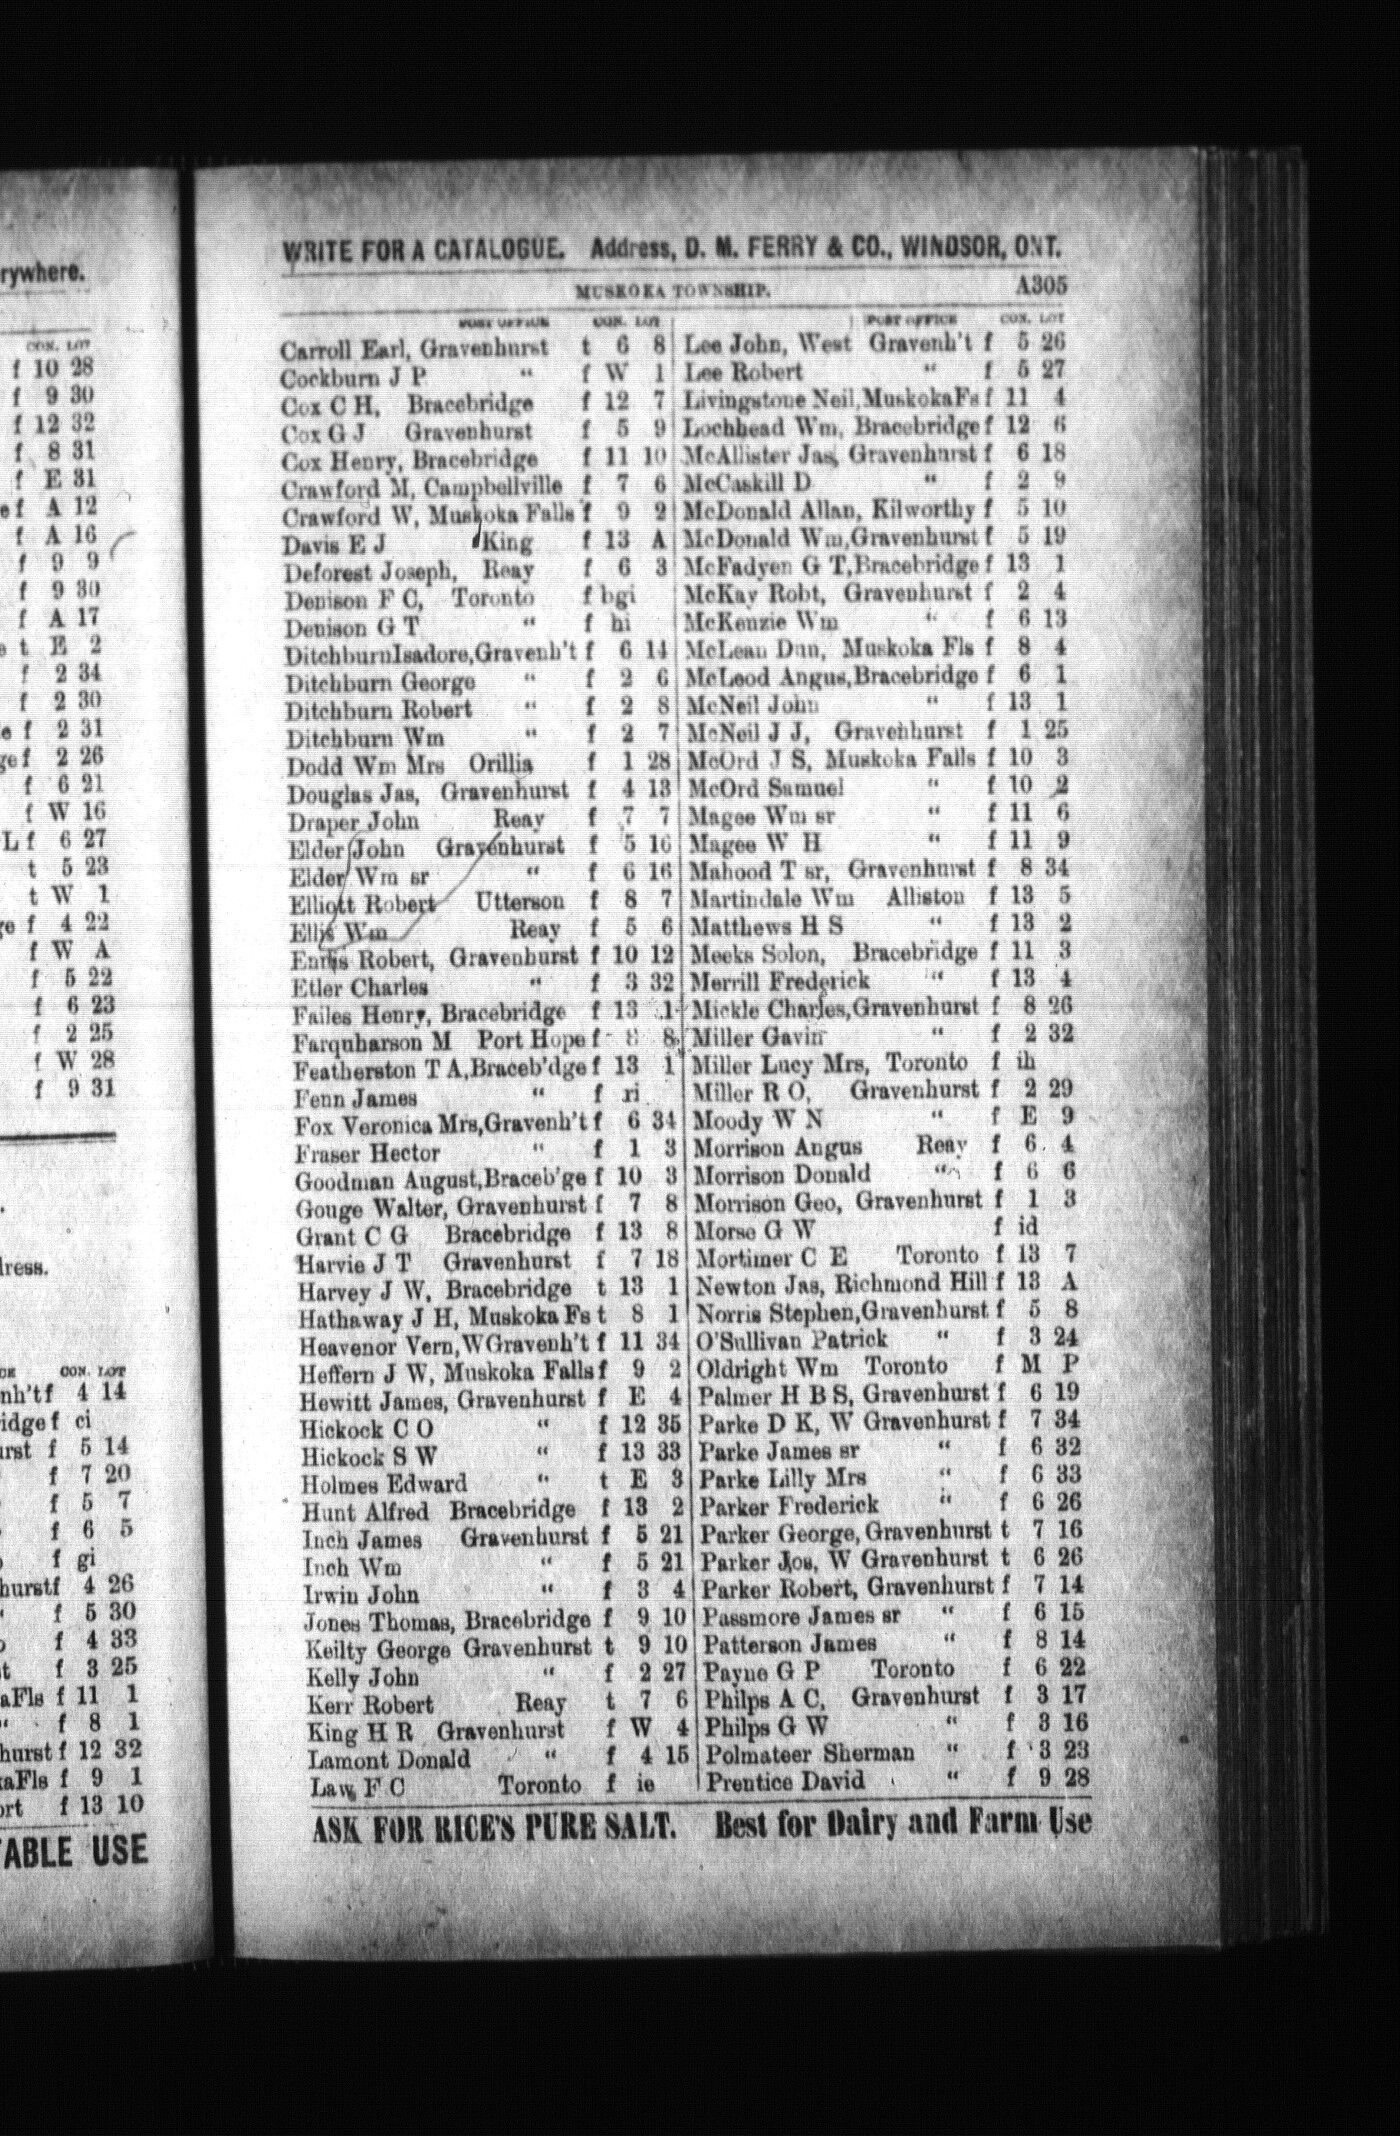 rywhere.
CON. LOT
f 10 28
f 9 30
f 12 32
f 8 31
f E 31
e f A 12
f A 16
f 9 9
f 9 30
f A 17
e t E 2
f 2 34
f 2 30
e f 2 31
ge f 2 26
f 6 21
f W 16
L f 6 27
t 5 23
t W 1
ge f 4 22
f W A
f 5 22
f 6 23
f 2 25
f W 28
f 9 31
dress.
CE CON. LOT
nh't f 4 14
ridge f ci
urst f 5 14
f 7 20
f 5 7
f 6 5
o f gi
hurst f 4 26
" f 5 30
o f 4 33
st f 3 25
aFls f 11 1
" f 8 1
hurst f 12 32
kaFls f 9 1
ort f 13 10
TABLE USE
WRITE FOR A CATALOGUE. Address, D. M. FERRY & CO., WINDSOR, ONT.
MUSKOKA TOWNSHIP. A305
POST OFFICE CON. LOT
Carroll Earl, Gravenhurst t 6 8
Cockburn J P " f W 1
Cox C H, Bracebridge f 12 7
Cox G J Gravenhurst f 5 9
Cox Henry, Bracebridge f 11 10
Crawford M, Campbellville f 7 6
Crawford W, Muskoka Falls f 9 2
Davis E J King f 13 A
Deforest Joseph, Reay f 6 3
Denison F C, Toronto f bgi
Denison G T " f hi
Ditchburn Isadore, Gravenh't f 6 14
Ditchburn George " f 2 6
Ditchburn Robert " f 2 8
Ditchburn Wm " f 2 7
Dodd Wm Mrs Orillia f 1 28
Douglas Jas, Gravenhurst f 4 13
Draper John Reay f 7 7
Elder John Gravenhurst f 5 16
Elder Wm sr " f 6 16
Elliott Robert Utterson f 8 7
Ellis Wm Reay f 5 6
Ennis Robert, Gravenhurst f 10 12
Etler Charles " f 3 32
Failes Henry, Bracebridge f 13 1
Farquharson M Port Hope f 8 8
Featherston T A, Braceb'dge f 13 1
Fenn James " f ri
Fox Veronica Mrs, Gravenh't f 6 34
Fraser Hector " f 1 3
Goodman August, Braceb'ge f 10 3
Gouge Walter, Gravenhurst f 7 8
Grant C G Bracebridge f 13 8
Harvie J T Gravenhurst f 7 18
Harvey J W, Bracebridge t 13 1
Hathaway J H, Muskoka Fs t 8 1
Heavenor Vern, W Gravenh't f 11 34
Heffern J W, Muskoka Falls f 9 2
Hewitt James, Gravenhurst f E 4
Hickock C O " f 12 35
Hickock S W " f 13 33
Holmes Edward " t E 3
Hunt Alfred Bracebridge f 13 2
Inch James Gravenhurst f 5 21
Inch Wm " f 5 21
Irwin John " f 3 4
Jones Thomas, Bracebridge f 9 10
Keilty George Gravenhurst t 9 10
Kelly John " f 2 27
Kerr Robert Reay t 7 6
King H R Gravenhurst f W 4
Lamont Donald " f 4 15
Law F C Toronto f ie
POST OFFICE CON. LOT
Lee John, West Gravenh't f 5 26
Lee Robert " f 5 27
Livingstone Neil, Muskoka Fs f 11 4
Lochhead Wm, Bracebridge f 12 6
McAllister Jas, Gravenhurst f 6 18
McCaskill D " f 2 9
McDonald Allan, Kilworthy f 5 10
McDonald Wm, Gravenhurst f 5 19
McFadyen G T, Bracebridge f 13 1
McKay Robt, Gravenhurst f 2 4
McKenzie Wm " f 6 13
McLean Dun, Muskoka Fls f 8 4
McLeod Angus, Bracebridge f 6 1
McNeil John " f 13 1
McNeil J J, Gravenhurst f 1 25
McOrd J S, Muskoka Falls f 10 3
McOrd Samuel " f 10 2
Magee Wm sr " f 11 6
Magee W H " f 11 9
Mahood T sr, Gravenhurst f 8 34
Martindale Wm Alliston f 13 5
Matthews H S " f 13 2
Meeks Solon, Bracebridge f 11 3
Merrill Frederick " f 13 4
Mickle Charles, Gravenhurst f 8 26
Miller Gavin " f 2 32
Miller Lucy Mrs, Toronto f ih
Miller R O, Gravenhurst f 2 29
Moody W N " f E 9
Morrison Angus Reay f 6 4
Morrison Donald " f 6 6
Morrison Geo, Gravenhurst f 1 3
Morse G W f id
Mortimer C E Toronto f 13 7
Newton Jas, Richmond Hill f 13 A
Norris Stephen, Gravenhurst f 5 8
O'Sullivan Patrick " f 3 24
Oldright Wm Toronto f M P
Palmer H B S, Gravenhurst f 6 19
Parke D K, W Gravenhurst f 7 34
Parke James sr " f 6 32
Parke Lilly Mrs " f 6 33
Parker Frederick " f 6 26
Parker George, Gravenhurst t 7 16
Parker Jos, W Gravenhurst t 6 26
Parker Robert, Gravenhurst f 7 14
Passmore James sr " f 6 15
Patterson James " f 8 14
Payne G P Toronto f 6 22
Philps A C, Gravenhurst f 3 17
Philps G W " f 3 16
Polmateer Sherman " f 3 23
Prentice David " f 9 28
ASK FOR RICE'S PURE SALT. Best for Dairy and Farm Use